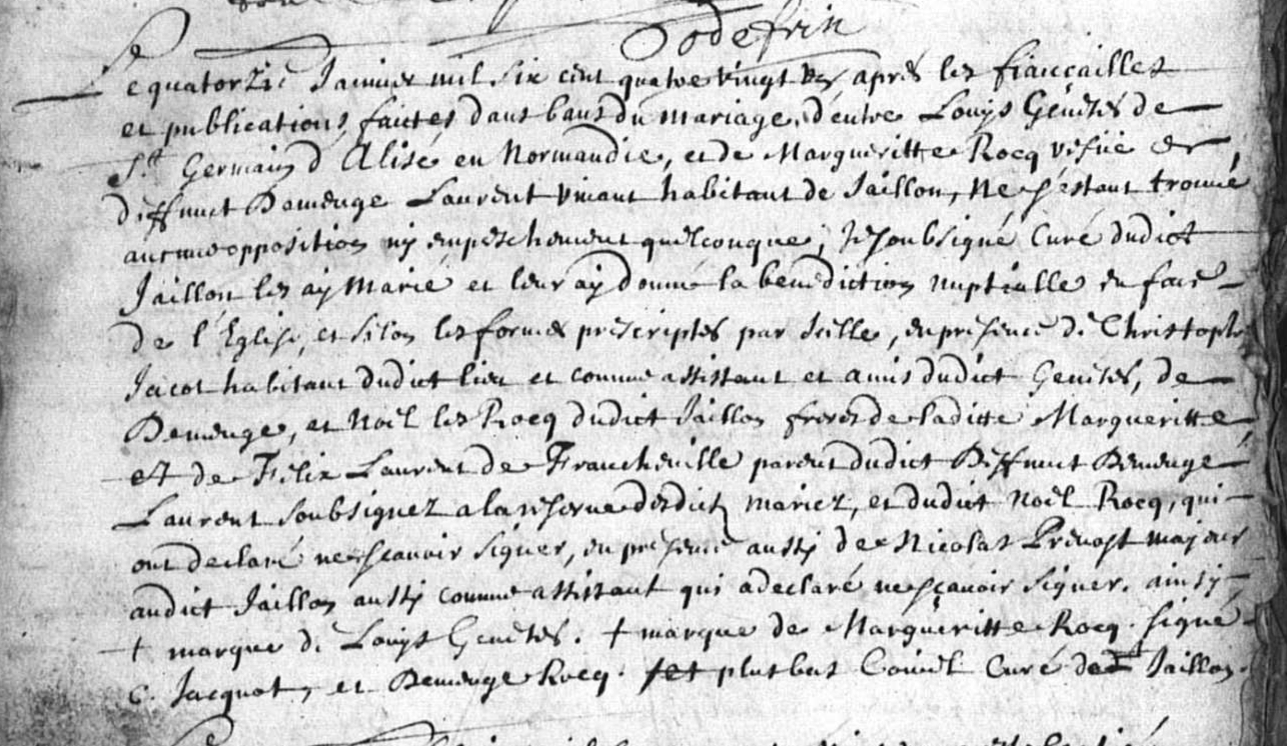 Le quatorzie Januier mil six cent quatre vingt apres les fiancailles
et publications faites dans bans du mariage, d'entre Louys Genetes de
St Germain d Alise en Normandie, et de Margueritte Rocq vefue de
deffunct Demenge Laurent viuant habitant de Jaillon, ne s'estant trouué
aucune opposition ny empeschement quelconque, Je soubsigné Curé dudict
Jaillon les ay marié et leur ay donné la benediction nuptialle en face
de l'Eglise, et selon les formes prescriptes par Icelle, en presence de Christophe
Jacot habitant dudict lieu et comme assistant et amis dudict Genetes, de
Demenge, et Noël les Rocq dudict Jaillon freres de laditte Margueritte,
et de Félix Laurent de Francheuille parent dudict Deffunct Demenge
Laurent soubsignez a la reserue desdicts mariez, et dudict Noël Rocq, qui
ont declaré ne sçauoir signer, en presence aussy de Nicolas Preuost majeur
audict Jaillon aussy comme assistant qui a declaré ne sçauoir signer. ainsy
+ marque de Louys Genetes. + marque de Margueritte Rocq. signé
C. Jacquot, et Demenge Rocq. et plus bas Curé de Jaillon.